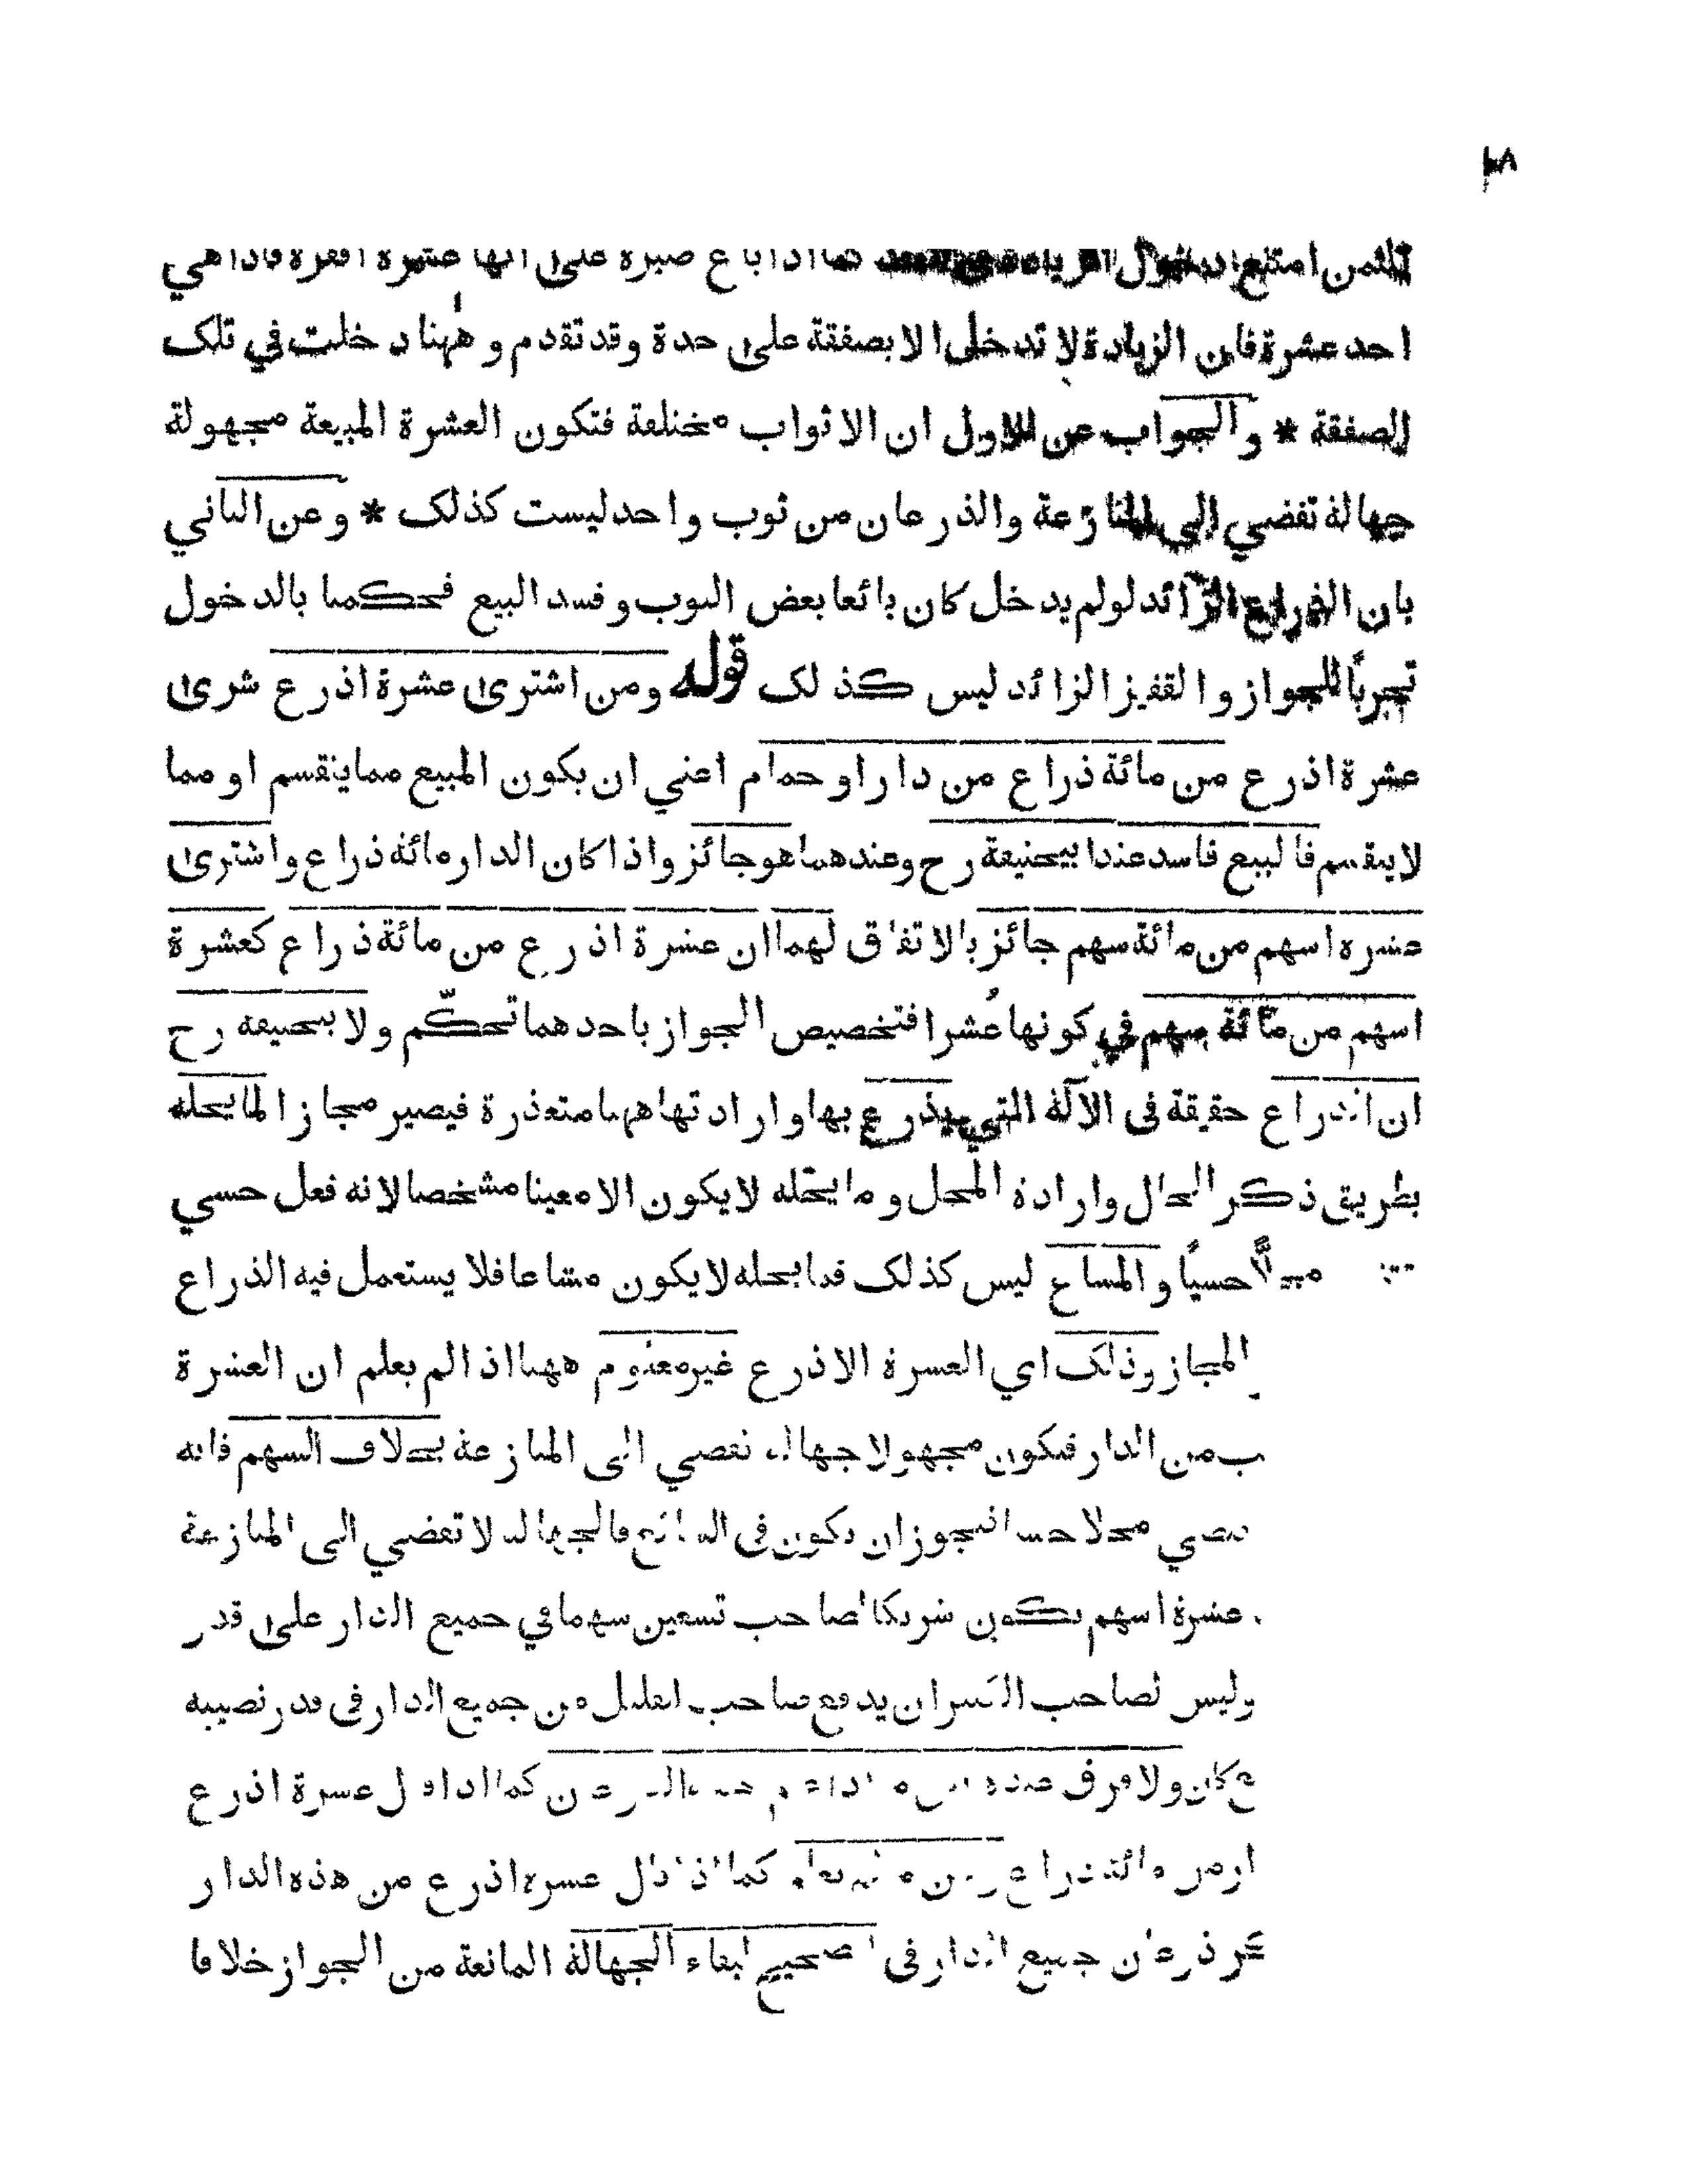 للثمن امتنع دخول كما اذا باع صبرة على انها عشرة اقفزة فاذا هي
احد عشرة فان الزيادة لا تدخل الا بصفقة على حدة وقد تقدم وههنا دخلت في تلك
الصفقة * والجواب عن الاول ان الاثواب مختلفة فتكون العشرة المبيعة مجهولة
جهالة تفضي الى المنازعة والذرعان من ثوب واحد ليست كذلك * وعن الثاني
بان الذراع الزائد لو لم يدخل كان بائعا بعض الثوب وفسد البيع فحكمنا بالدخول
تحريًا للجواز والقفيز الزائد ليس كذلك قوله ومن اشترى عشرة اذرع شرى
عشرة اذرع من مائة ذراع من دار او حمام اعني ان يكون المبيع مما ينقسم او مما
لا ينقسم فالبيع فاسد عند ابيحنيفة رح وعندهما هو جائز واذا كان الدار مائة ذراع واشترى
عشرة اسهم من مائة سهم جائز بالاتفاق لهما ان عشرة اذرع من مائة ذراع كعشرة
اسهم من مائة سهم في كونها عُشرا فتخصيص الجواز باحدهما تحكّم ولابيحنيفة رح
ان الذراع حقيقة فى الآلة التي يذرع بها وارادتها ههنا متعذرة فيصير مجازا لما يحله
بطريق ذكر الحال وارادة المحل وما يحله لا يكون الا معينا مشخصا لانه فعل حسي
حسيًا والمشاع ليس كذلك فما يحله لا يكون مشاعا فلا يستعمل فيه الذراع
المجاز وذلك اي العشرة الاذرع غير معلوم ههنا اذا لم يعلم ان العشرة
من الدار فيكون مجهولا جهالة تفضي الى المنازعة بخلاف السهم فانه
فيجوز ان يكون فى الشائع فالجهالة لا تفضي الى المنازعة
عشرة اسهم يكون شريكا لصاحب تسعين سهما في جميع الدار على قدر
وليس لصاحب الكثير ان يدفع صاحب القليل من جميع الدار فى قدر نصيبه
كان ولا فرق عنده كما اذا قال عشرة اذرع
مائة ذراع كما اذا قال عشرة اذرع من هذه الدار
ذرعان جميع الدار فى الصحيح لبقاء الجهالة المانعة من الجواز خلافا